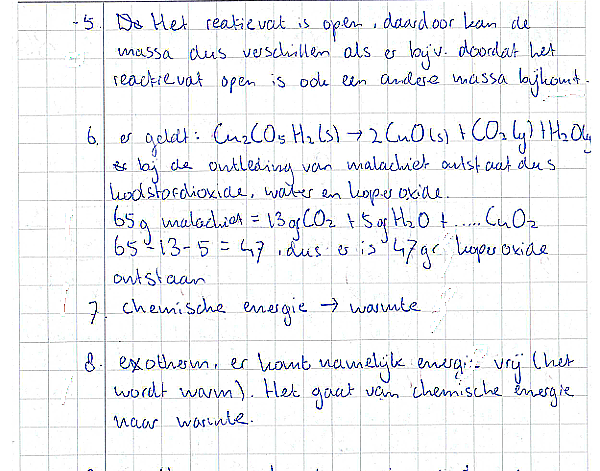 -5. Het reactievat is open, daardoor kan de
massa dus verschillen als er bijv. doordat het
reactievat open is ook een andere massa bijkomt.
6. er geldt: Cu₂CO₅H₂(s) → 2CuO(s) + CO₂(g) + H₂O(g)
bij de ontleding van malachiet ontstaat dus
koolstofdioxide, water en koperoxide.
65g malachiet = 13gCO₂ + 5gH₂O + ..... CuO₂
65-13-5 = 47, dus er is 47gr koperoxide
ontstaan
7. chemische energie → warmte
8. exotherm, er komt namelijk energie vrij (het
wordt warm). Het gaat van chemische energie
naar warmte.